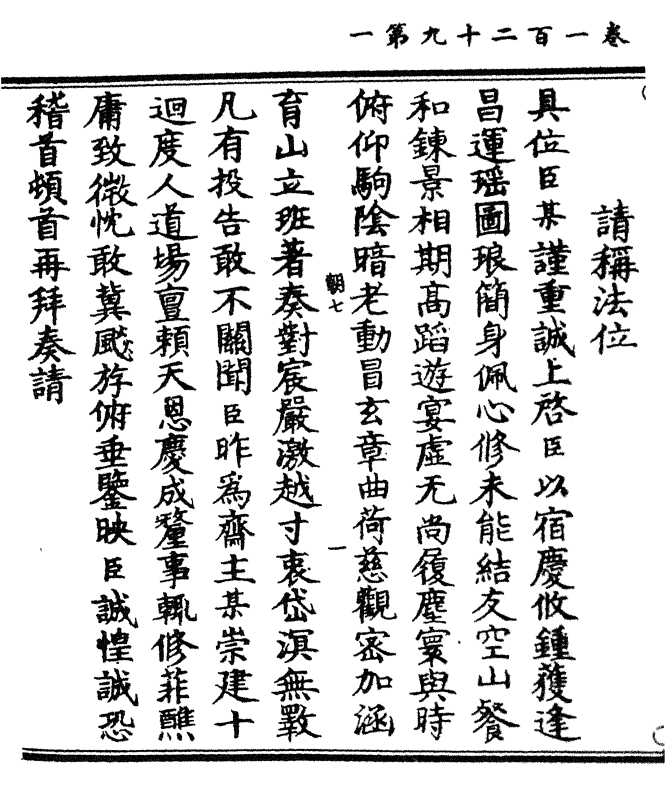 卷一百二十九第一
請稱法位
具位臣某謹重誠上啓臣以宿慶攸鍾獲逢
昌運瑶圖琅簡身佩心修未能結友空山餐
和鍊景相期高蹈遊宴虛无尚履塵寰與時
俯仰駒陰暗老動冒玄章曲荷慈觀密加涵
朝七
一
育山立班著奏對宸嚴激越寸衷岱溟無斁
凡有投告敢不關聞臣昨爲齋主某崇建十
迴度人道場亶賴天恩慶成釐事輒修菲醮
庸致微忱敢冀飈斿俯垂鑒映臣誠惶誠恐
稽首頓首再拜奏請